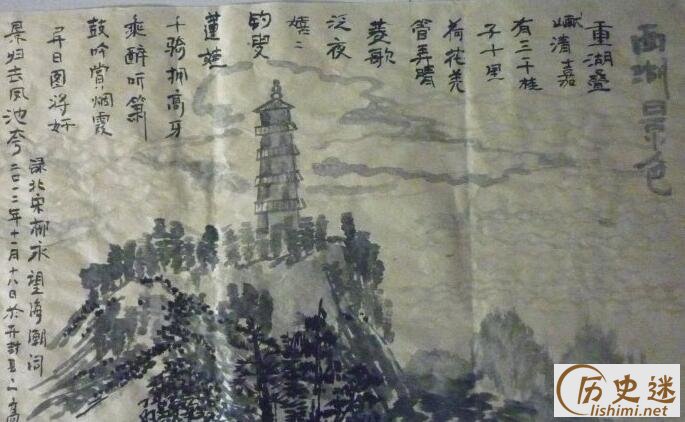 西湖景色
重湖叠
巘清嘉
有三千桂
子十里
荷花羌
管弄晴
菱歌
泛夜
嬉〻
钓叟
蓮娃
千骑拥高牙
乘醉听箫
鼓吟赏烟霞
异日图将好
景归去凤池夸
录北宋柳永望海潮词
二〇一二年十一月十八日於开封
历史迷
lishimi.net